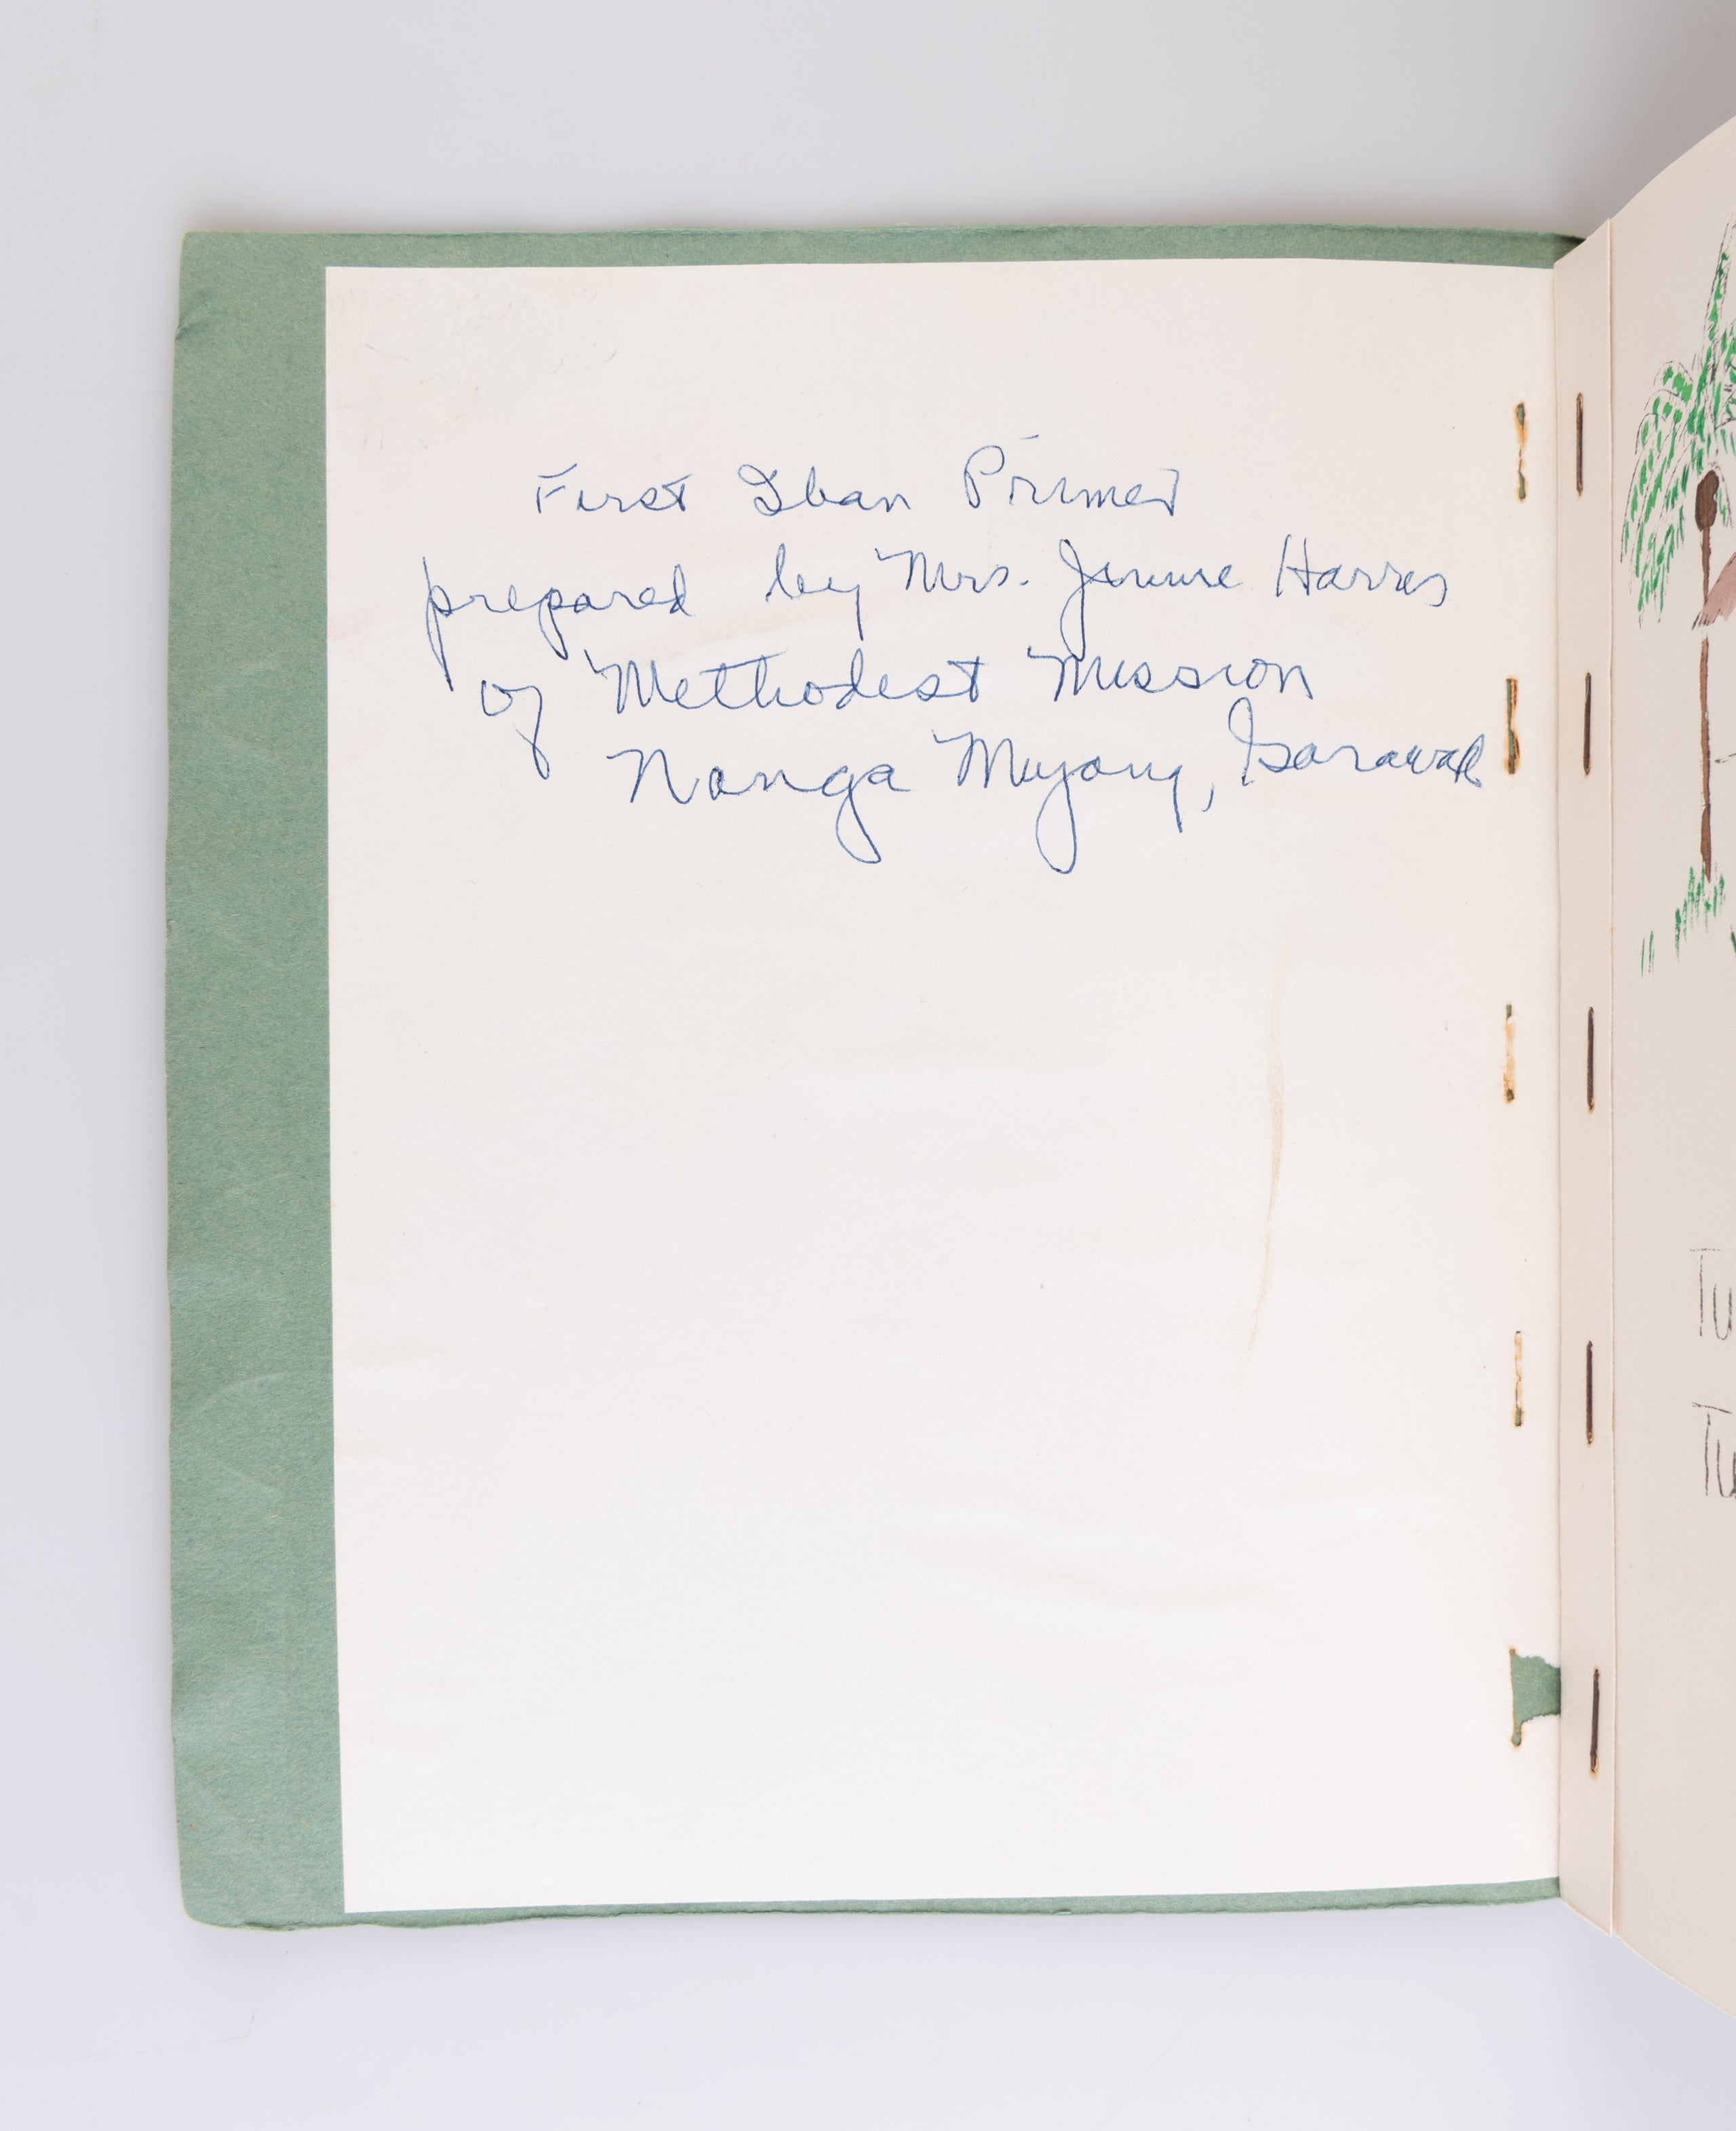 First Iban Primer
prepared by Mrs. Jennie Harris
of Methodist Mission
Nanga Mujong, Sarawak
Tu
Tu